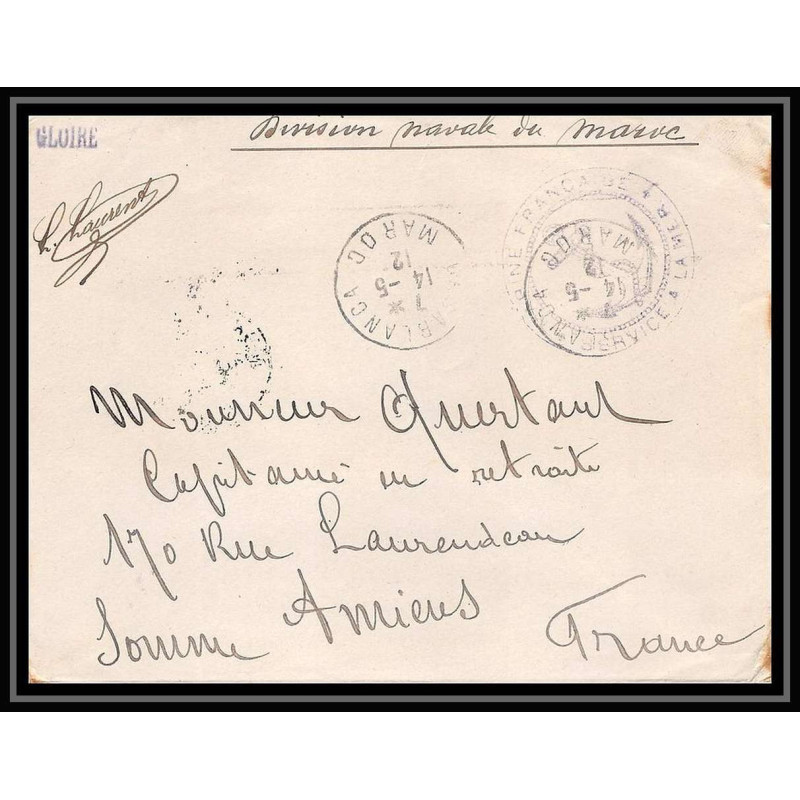 GLOIRE
Division navale du Maroc
L. Laurent
CASABLANCA MAROC
7 *
14 -5
12
MARINE FRANÇAISE
SERVICE A LA MER
MAROC
14 -5
12
Monsieur Quertant
Capitaine en retraite
170 Rue Laurendeau
Amiens
Somme
France